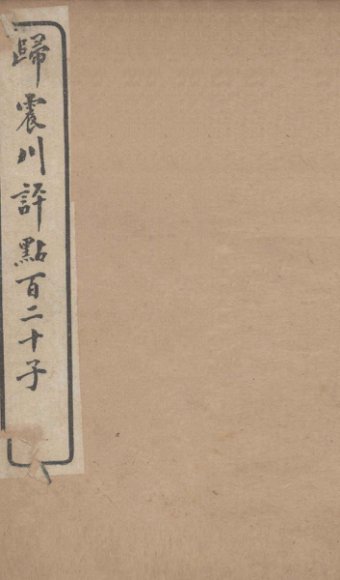 歸震川評點百二十子